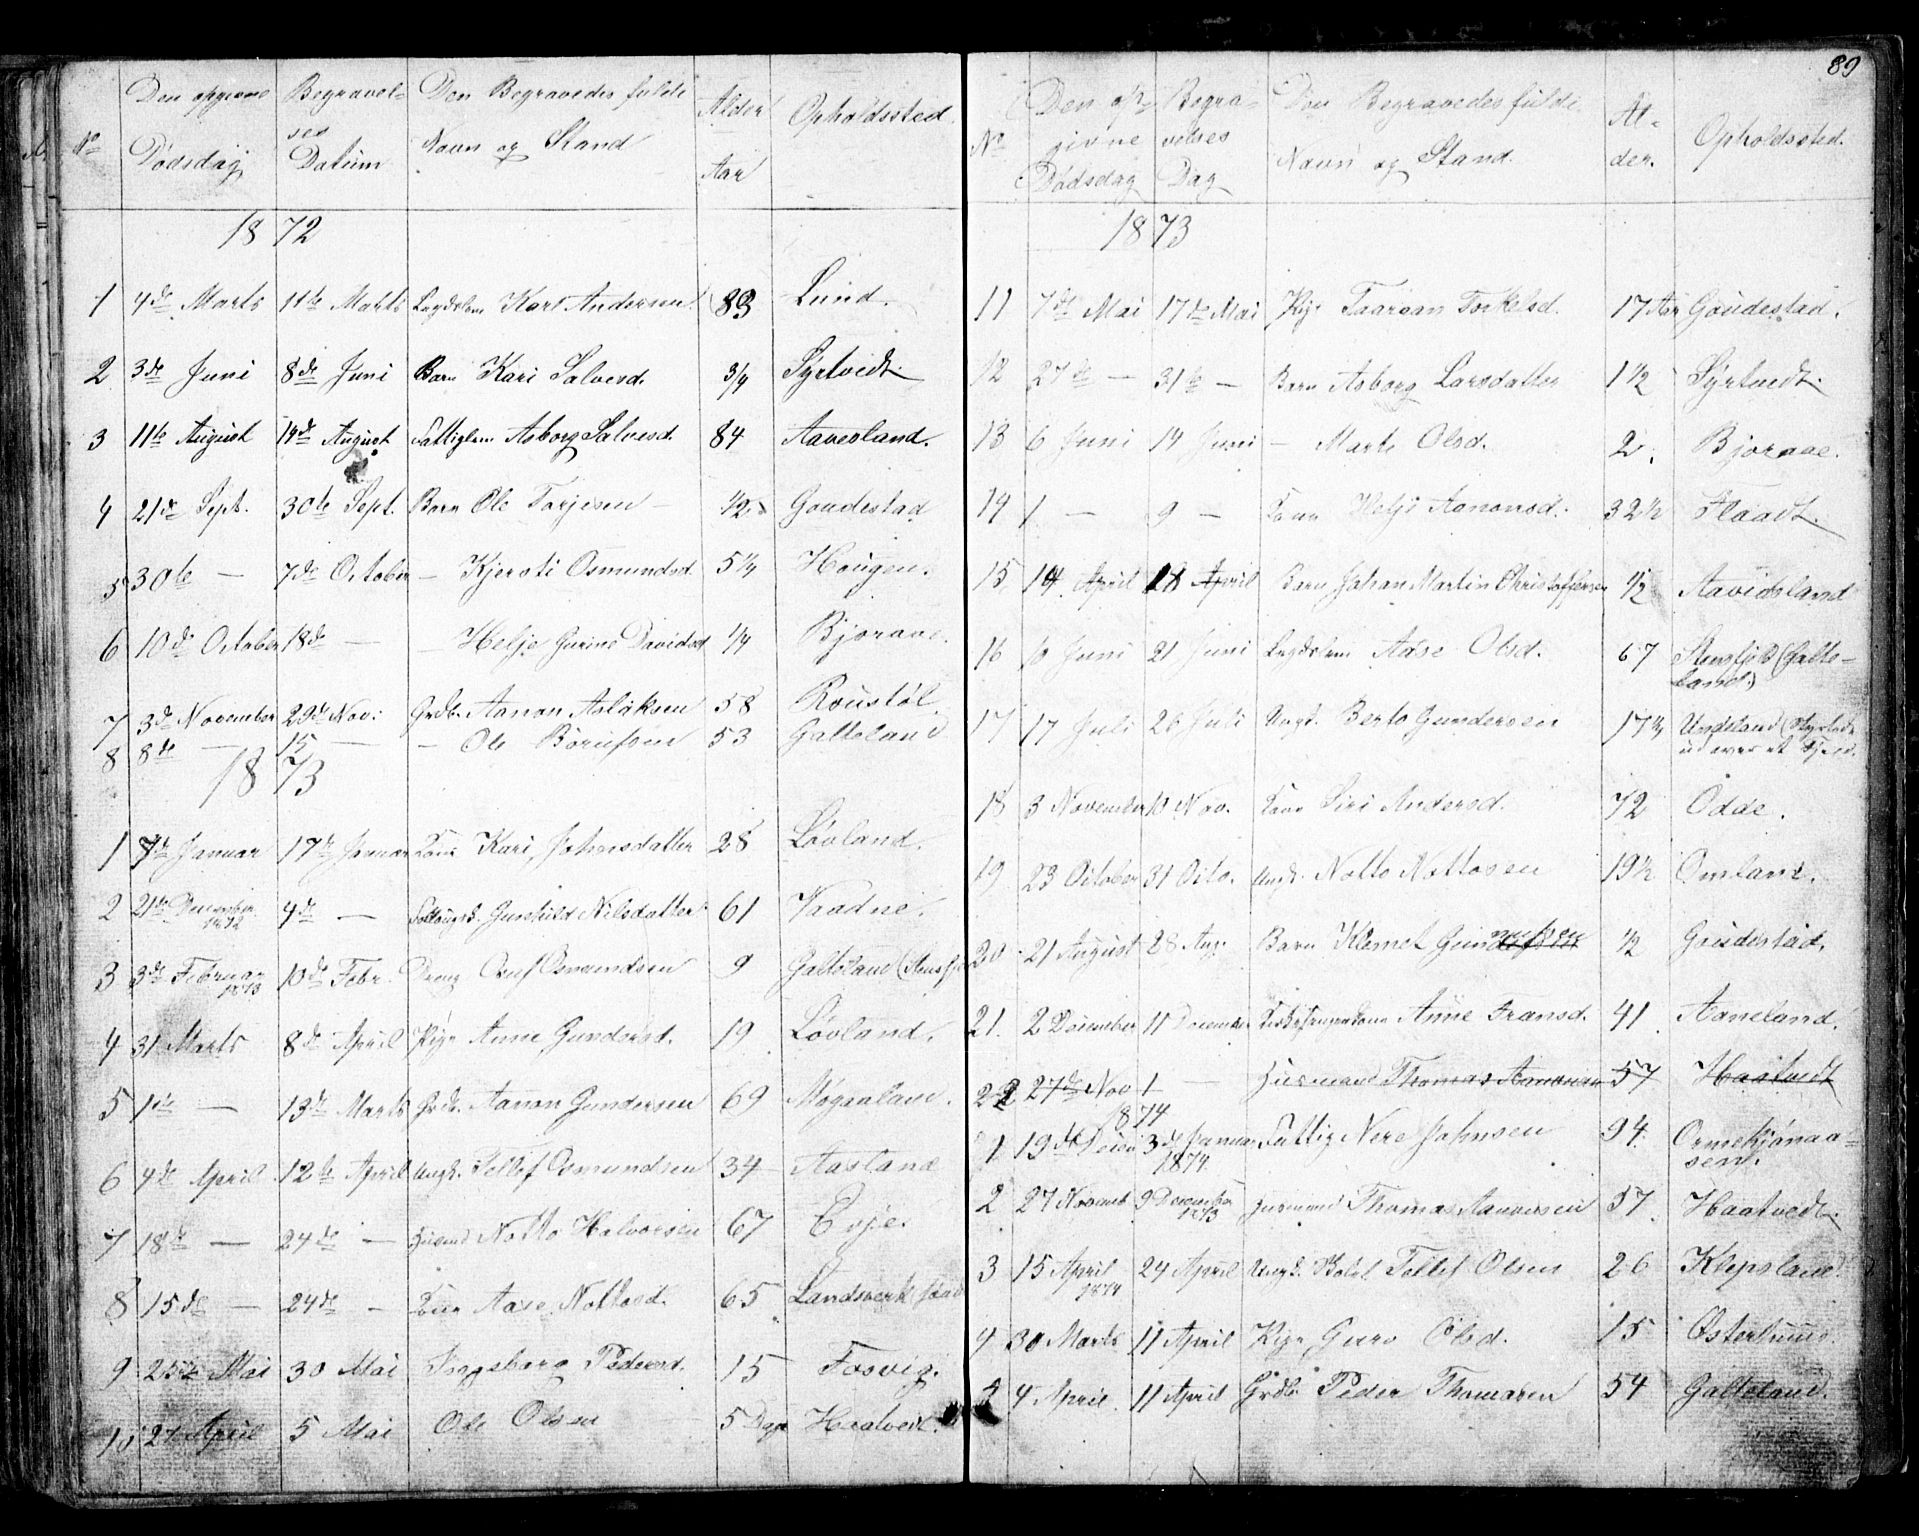 89
No Den opgivne Dødsdag Begravelses Datum Den Begravedes fulde Navn og Stand Alder Aar Opholdssted
1872
1 4de Marts 11te Marts Lægdslem Kari Andersen 83 Lund.
2 3de Juni 8de Juni Barn Kari Salvesd. 3/4 Syrtvedt.
3 11te August 14de August Fattiglem Asborg Salvesd. 84 Aavesland.
4 21de Sept. 30te Sept. Barn Ole Torjesen 1/2 Goudestad
5 30te — 7de October — Kjersti Osmundsd. 5 1/4 Hougen.
6 10de October 18de — — Helje Gurine Davidsd 1/4 Bjoraae.
7 3de November 29de Nov: Grdb. Aanon Aslaksen 58 Roustøl
8 8de — 15 — — Ole Børufsen 53 Galteland
1873
1 7de Januar 17de Januar Kone Kari Johnsdatter 28 Løvland.
2 21de December 1872 4de — Gunhild Nilsdatter 61 Vaadne.
3 3de Februar 1873 10de Febr. Dreng Oluf Osmundsen 9 Galteland
4 31 Marts 8de April Pige Anne Gundersd. 19 Løvland.
5 1de — 13de Marts Grdb. Aanon Gundersen 69
6 4de April 12te April Ungk. Tellef Osmundsen 34 Aasland
7 18de — 24de — Husmd Notto Halvorsen 67 Evje.
8 15de — 24de — Kone Aase Nottosd. 65 Landsverk
9 25de Mai 30 Mai Ingeborg Pedersd. 15 Fosvig.
10 27 April 5 Mai Ole Olsen 5 Dage Haatvedt.
No Den opgivne Dødsdag Begravelses Dag Den Begravedes fulde Navn og Stand. Alder. Opholdssted.
1873
11 7de Mai 17de Mai Pige Taaraan Torkelsd. 17 Aar Goudestad.
12 27de — 31te — Barn Asborg Larsdatter 1 1/2 Syrtvedt.
13 6 Juni 14 Juni — Marte Olsd. 2. Bjoraae.
14 1 — 9 — Kone Helje Aanonsd. 32 1/2 Flaadt.
15 14 April 21 April Barn Johan Martin Christoffersen 1/2 Aavidsland
16 10 Juni 21 Juni Lægdslem Aase Olsd. 67 Stensfjeld (Galteland.)
17 17 Juli 26 Juli Ungk. Gundersen 17 3/4
ud over et Fjeld.
18 3 November 10 Nov. Kone Siri Andersd. 72 Odde.
19 23 October 31 Octo. Ungk. Notto Nottosen 19 1/2 Omland.
20 21 August 28 Aug. Barn Klemet 1/2 Goudestad.
21. 2 December 11 December Anne Fransd. 41 Aaneland.
22 27de Nov 1 — Husmand Thomas Aanonsen 57 Haatvedt
1874
1 19de Decem 3de Januar 1874. Fattig Nere Johnsen 94
2 27 Novemb 9 December 1873 Husmand Thomas Aanonsen 57. Haatvedt.
3 15 April 1874 24 April Ungk. Tellef Olsen 26 Klepsland.
4 30 Marts 11 April Pige Guro Olsd. 15 Osterhuus.
5 4 April. 11 April Grdb. Peder Thomasen 54 Galteland.